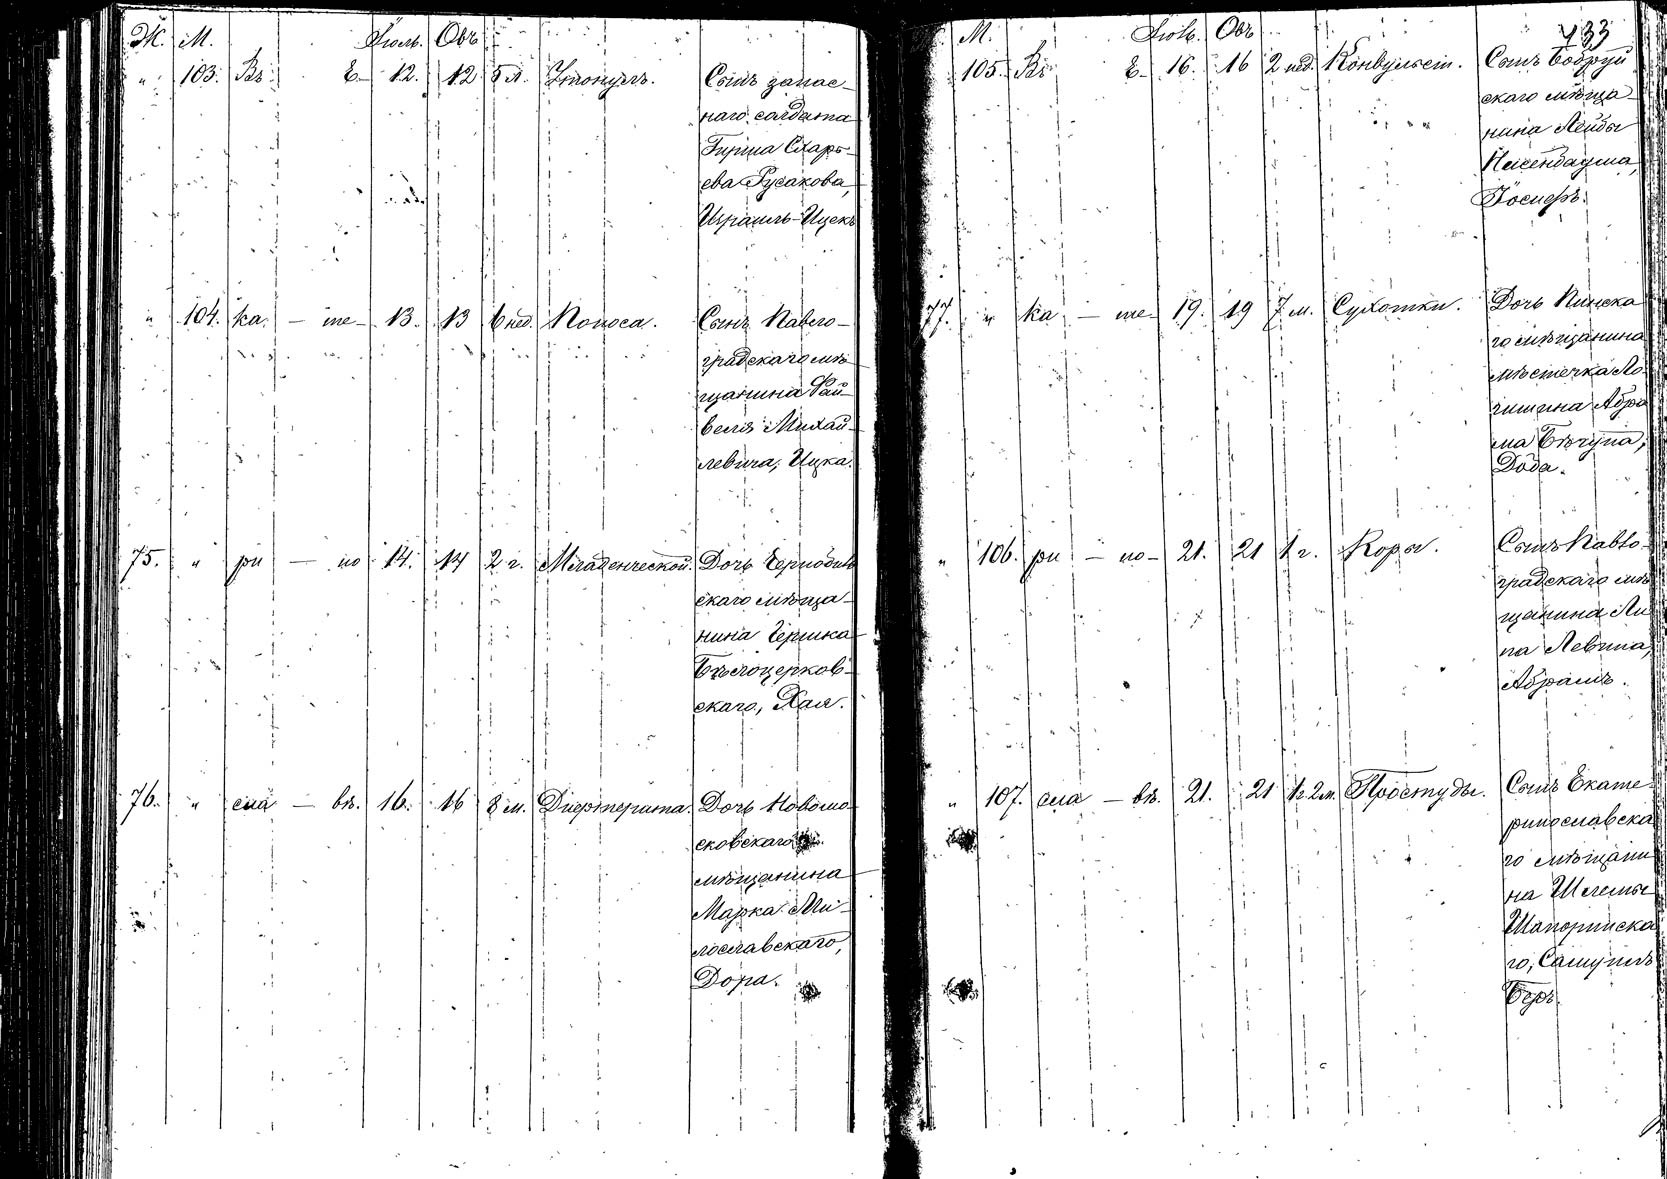 Ж. М. Іюль. Овъ
" 103. Въ Е- 12. 12 5 л. Утонулъ. Сынъ запас-
наго солдата
Гирша Сларь-
ева Русакова,
Израиль-Ицекъ
" 104. ка - те- 13. 13 6 нед. Поноса. Сынъ Павло-
градскаго мѣ-
щанина Фай-
веля Михай-
левича, Ицка.
75. " ри - но 14. 14 2 г. Младенческой. Дочь Чернобыль
скаго мѣща-
нина Гершка
Бѣлоцерков-
скаго, Хая.
76. " сла - вѣ. 16. 16 8 м. Дифтерита. Дочь Новомо-
сковскаго
мѣщанина
Марка Ми-
лославскаго,
Дора.
433
М. Іюль. Овъ
105. Въ Е- 16. 16 2 нед. Конвульсіи. Сынъ Бобруй
скаго мѣща-
нина Лейбы
Нисенбаума,
Іосифъ.
77. " ка - те- 19. 19 7 м. Сухотки. Дочь Пинска
го мѣщанина
мѣстечка Ло-
гишина Абра
ма Бѣгуна,
Доба.
" 106. ри - но- 21. 21 1 г. Коры. Сынъ Павло-
градскаго мѣ
щанина Ли
па Левина,
Абрамъ.
" 107. сла - вѣ. 21. 21 1 г. 2 м. Простуды. Сынъ Екате-
ринославска
го мѣщани
на Шлемы
Шапоринска
го, Самуилъ
Беръ.